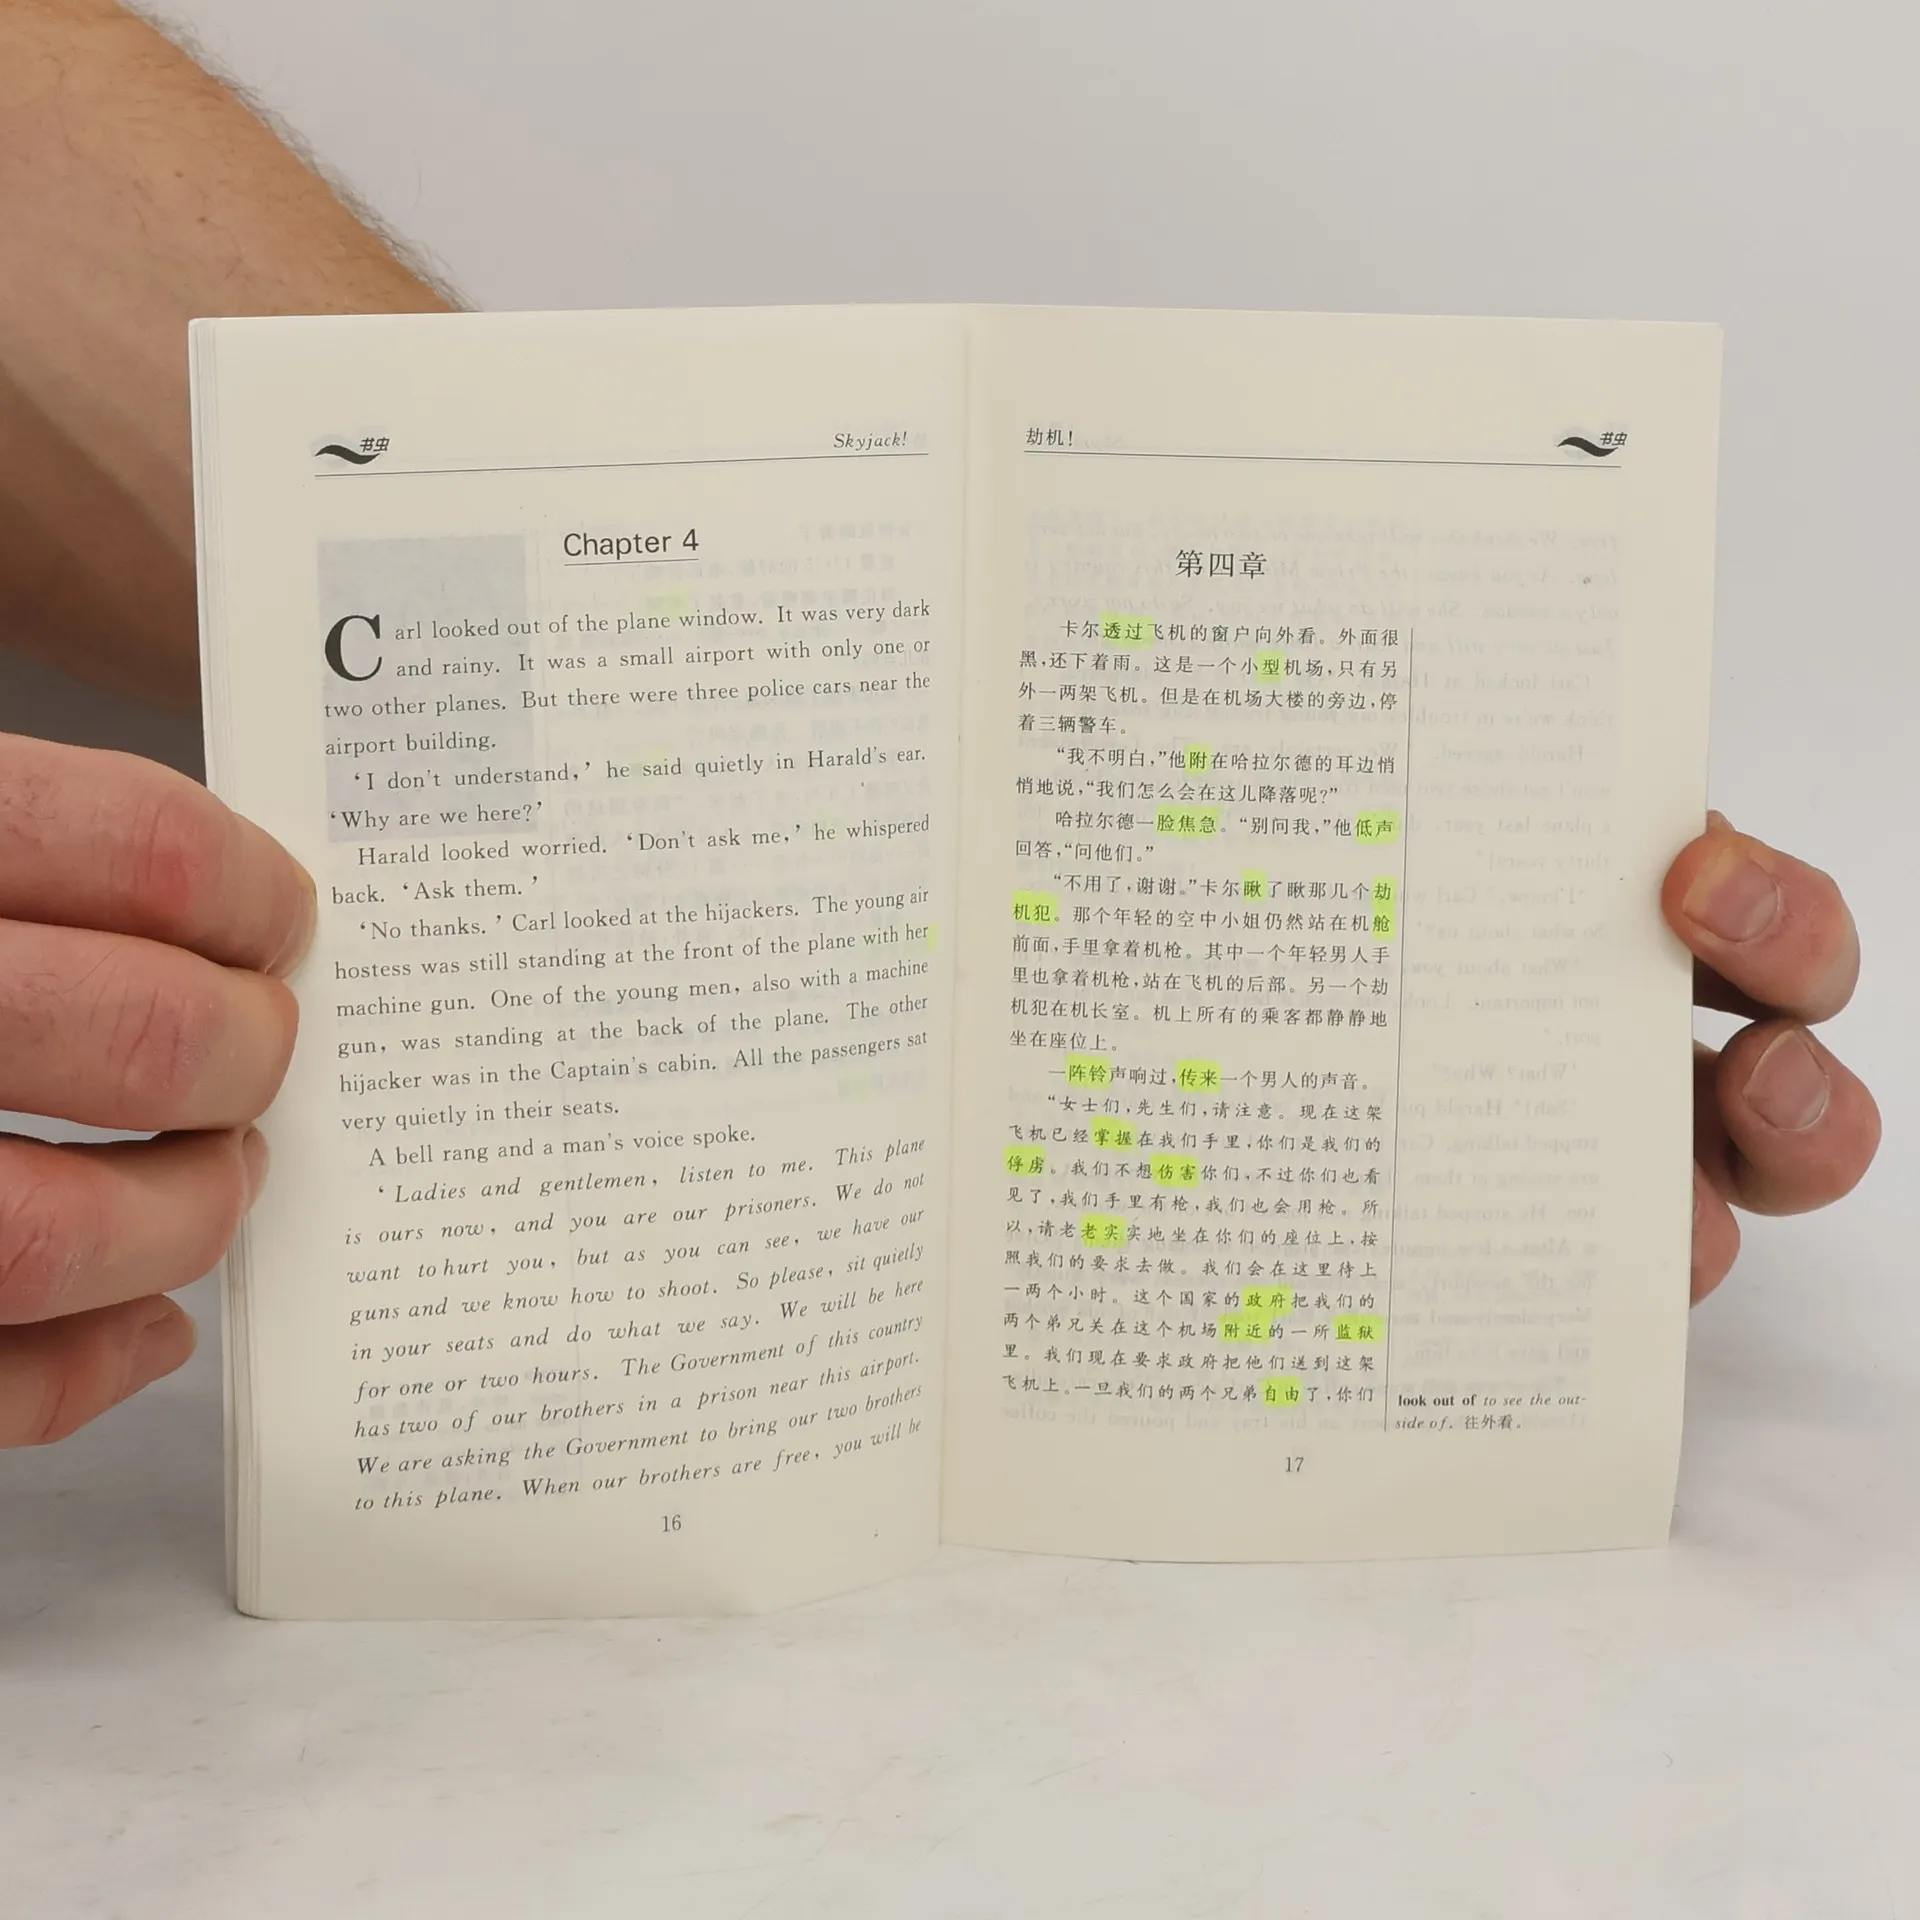 书虫
Skyjack!
Chapter 4
Carl looked out of the plane window. It was very dark
and rainy. It was a small airport with only one or
two other planes. But there were three police cars near the
airport building.
‘I don't understand,’ he said quietly in Harald's ear.
‘Why are we here?’
Harald looked worried. ‘Don't ask me,’ he whispered
back. ‘Ask them.’
‘No thanks.’ Carl looked at the hijackers. The young air
hostess was still standing at the front of the plane with her
machine gun. One of the young men, also with a machine
gun, was standing at the back of the plane. The other
hijacker was in the Captain's cabin. All the passengers sat
very quietly in their seats.
A bell rang and a man's voice spoke.
‘Ladies and gentlemen, listen to me. This plane
is ours now, and you are our prisoners. We do not
want to hurt you, but as you can see, we have our
guns and we know how to shoot. So please, sit quietly
in your seats and do what we say. We will be here
for one or two hours. The Government of this country
has two of our brothers in a prison near this airport.
We are asking the Government to bring our two brothers
to this plane. When our brothers are free, you will be
16
劫机!
书虫
第四章
卡尔透过飞机的窗户向外看。外面很
黑,还下着雨。这是一个小型机场,只有另
外一两架飞机。但是在机场大楼的旁边,停
着三辆警车。
“我不明白,”他附在哈拉尔德的耳边悄
悄地说,“我们怎么会在这儿降落呢?”
哈拉尔德一脸焦急。“别问我,”他低声
回答,“问他们。”
“不用了,谢谢。”卡尔瞅了瞅那几个劫
机犯。那个年轻的空中小姐仍然站在机舱
前面,手里拿着机枪。其中一个年轻男人手
里也拿着机枪,站在飞机的后部。另一个劫
机犯在机长室。机上所有的乘客都静静地
坐在座位上。
一阵铃声响过,传来一个男人的声音。
“女士们,先生们,请注意。现在这架
飞机已经掌握在我们手里,你们是我们的
俘虏。我们不想伤害你们,不过你们也看
见了,我们手里有枪,我们也会用枪。所
以,请老老实实地坐在你们的座位上,按
照我们的要求去做。我们会在这里待上
一两个小时。这个国家的政府把我们的
两个弟兄关在这个机场附近的一所监狱
里。我们现在要求政府把他们送到这架
飞机上。一旦我们的两个兄弟自由了,你们
look out of to see the out-
side of. 往外看。
17